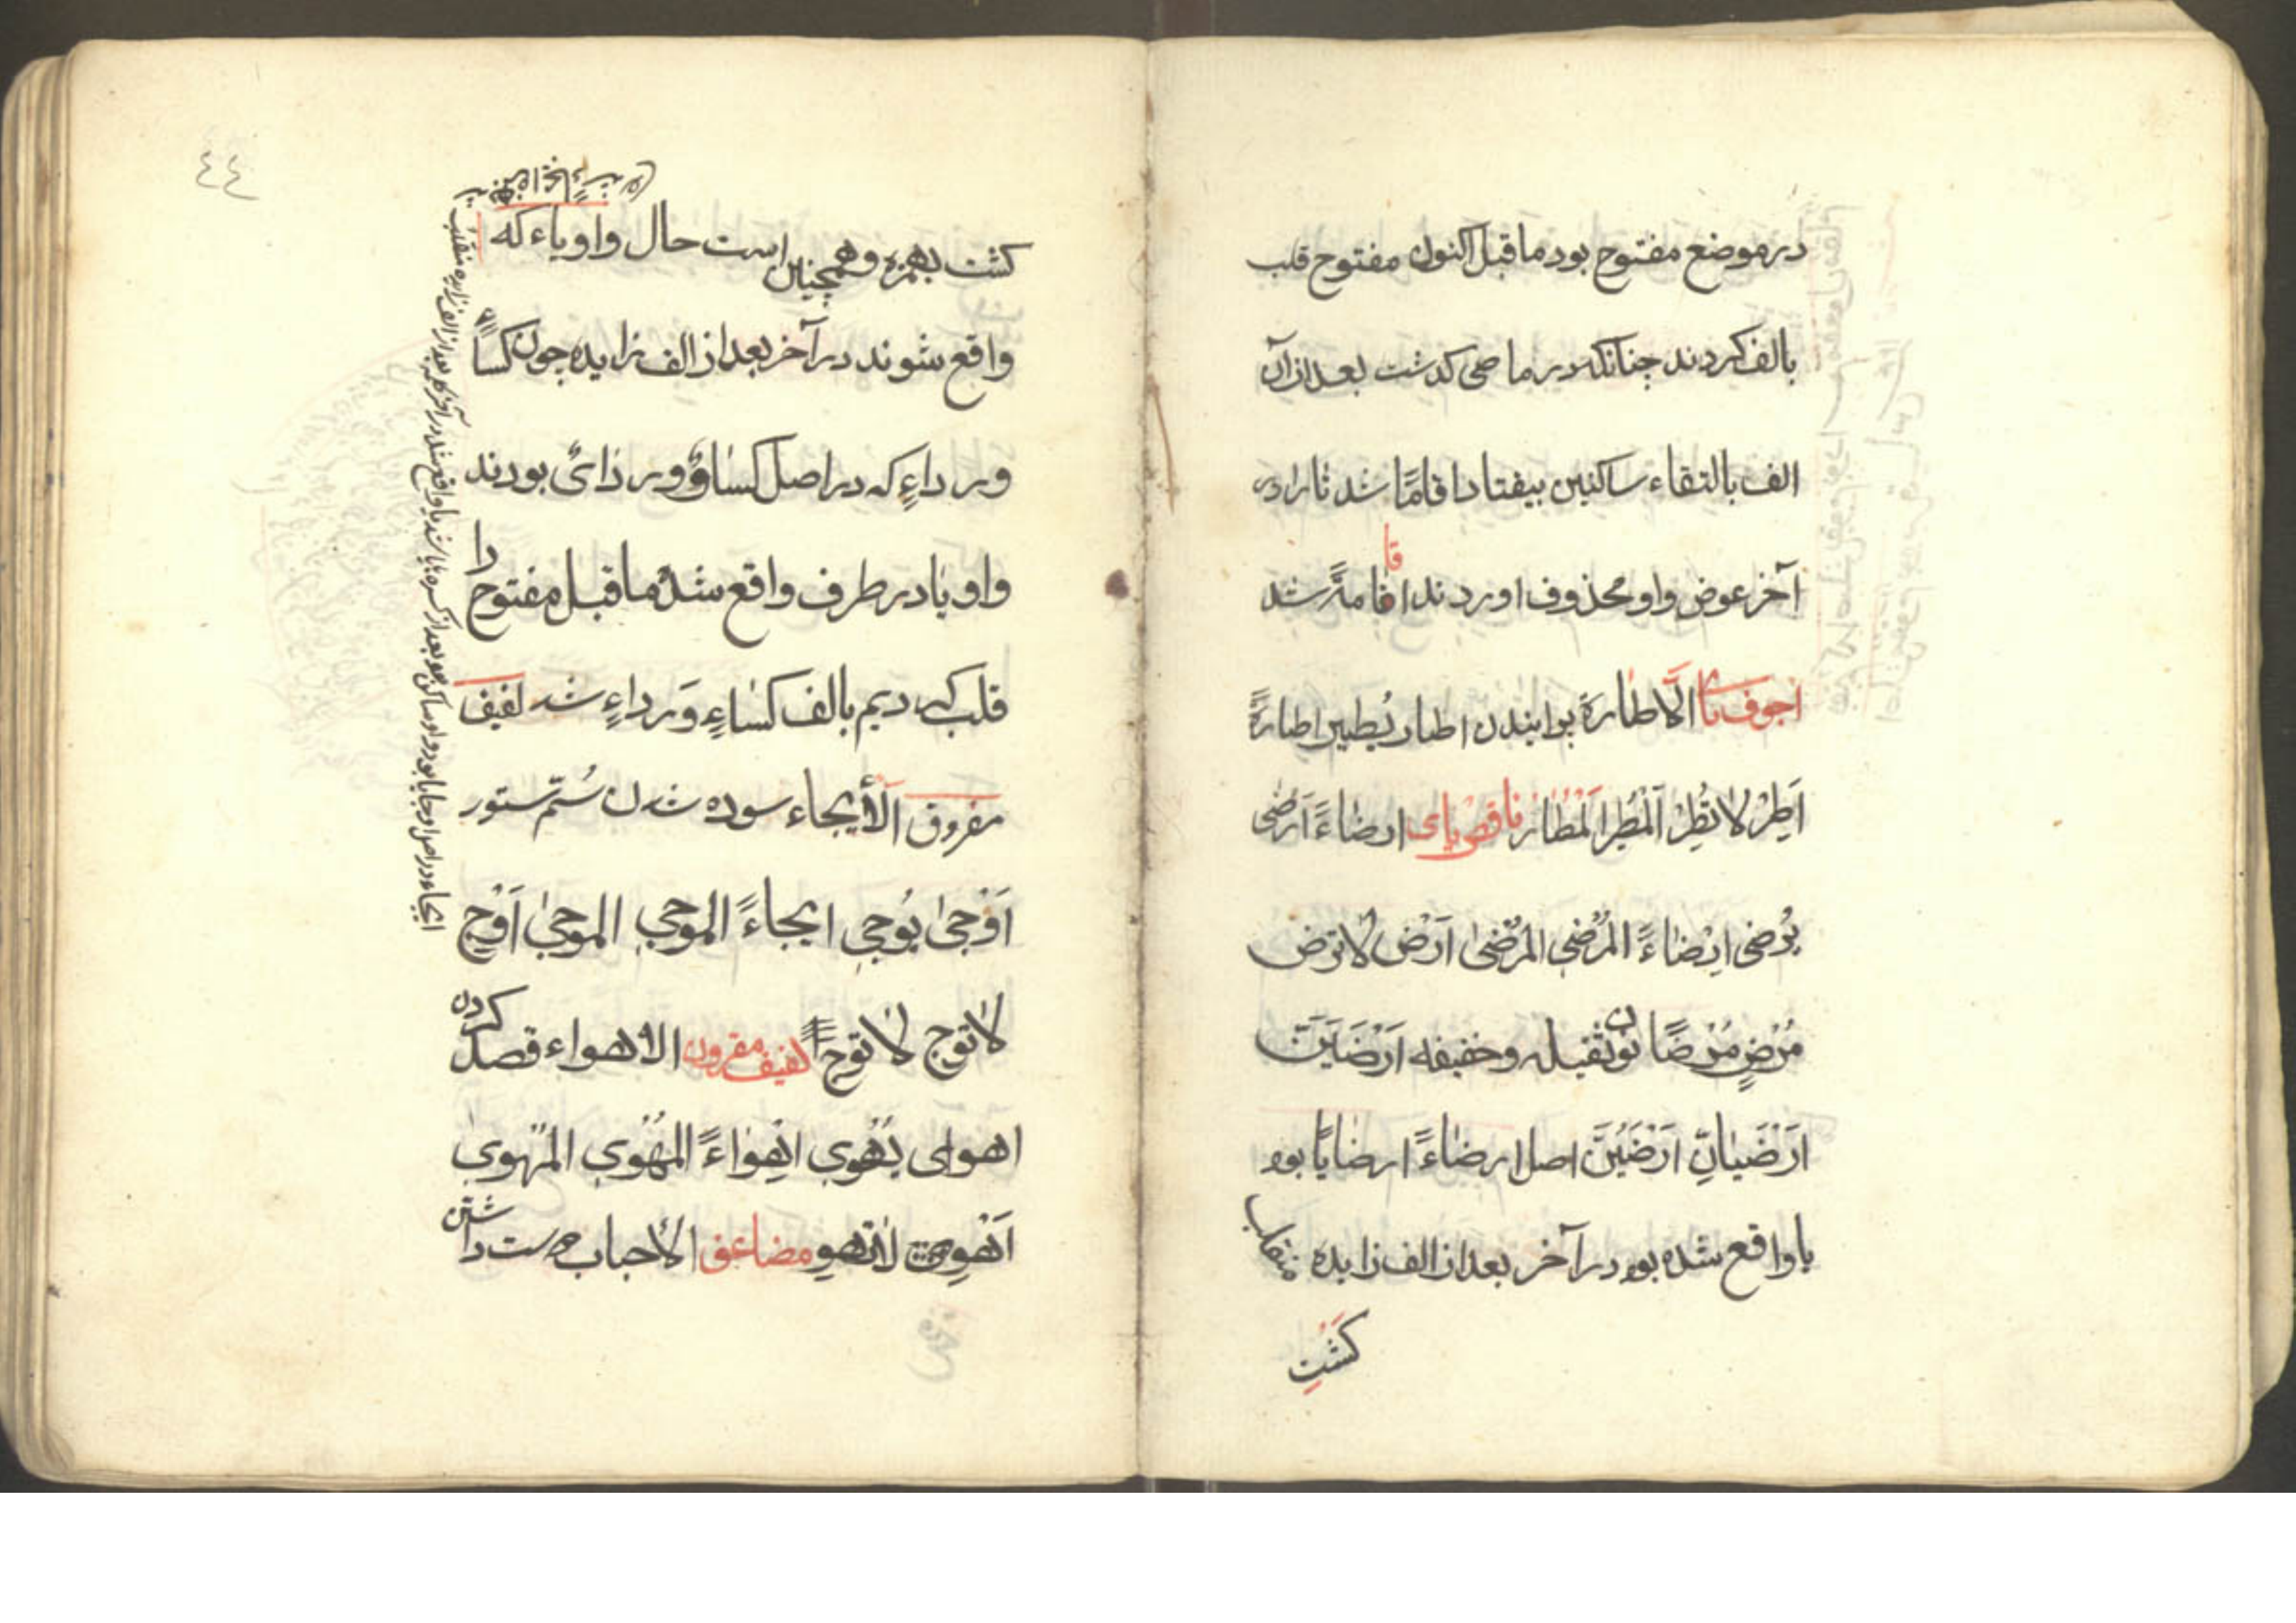 در موضع مفتوح بود ماقبل اکنون مفتوح قلب
بالف کردند چنانکه در ماضی کذشت بعد از آن
الف بالتقاء ساکنین بیفتاد اقامًا شد تا را در
آخر عوض واو محذوف اوردند اقامةً شد
اجوف یا الاطارة پرانیدن اطار یُطیر اطارةً
اَطِرْ لا تُطِرْ اَلْمُطِر اَلْمُطَار ناقص یای ارضاءً اَرضی
یُرضی اِرْضاءً المُرْضِی المُرْضیٰ اَرْضِ لا ترض
مُرْضٍ مُرْضًا نون ثقیله وخفیفه اَرْضَیَنَّ
اَرْضَیانِّ اَرْضَیُنَّ اصل ارضاءً ارضایًا بود
یا واقع شده بود در آخر بعد از الف زایده منقلب
کشت
٤٤
کشت بهمزه و همچنین است حال واو یاء که
واقع شوند در آخر بعد از الف زایده چون کساءً
ورداءٍ که در اصل کساوٌ وردایٌ بودند
واو یا در طرف واقع شده ماقبل مفتوح را
قلب کردیم بالف کساءٍ وَرداءٍ شد لفیف
مفروق الأیجاء سوده شدن سُمّ ستور
اَوْجیٰ یُوجِی ایجاءً الموجی الموجیٰ اَوْجِ
لا توج لا توج لفیف مقرون الاهواء قصد کردن
اهوای یُهْوِی اِهْواءً المُهْوِی المُهوی
اَهْوِ لا تهوِ مضاعف الأحباب دوست داشتن
ایجاء در اصل اوجایا بود واو ساکن بود بعد از کسره یا شد یا واقع شد در آخر کلمه بعد از الف زایده منقلب